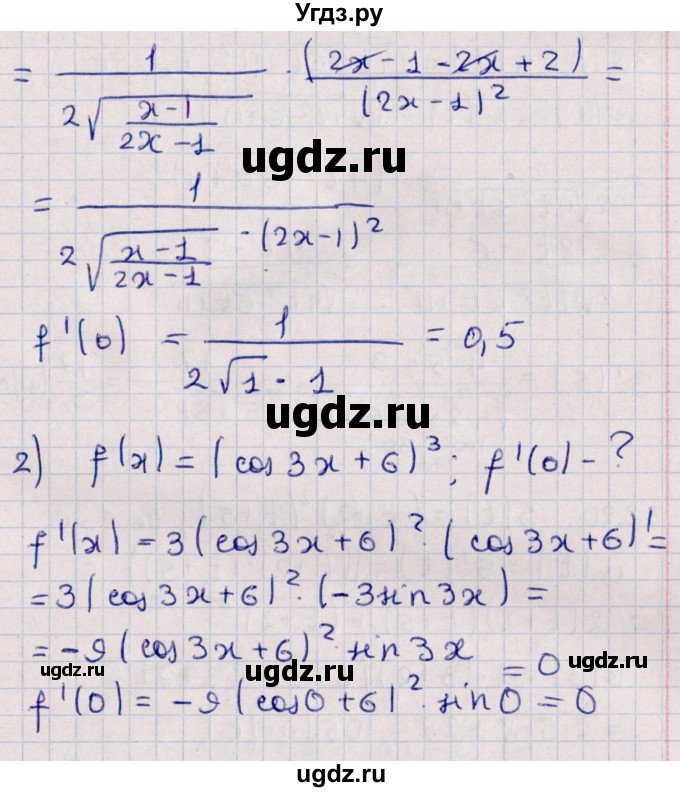 Угдз.ру
= 1 / (2√((x-1)/(2x-1))) · (2x - 1 - 2x + 2) / (2x - 1)² =
ugdz.ru
= 1 / (2√((x-1)/(2x-1)) · (2x-1)²)
f'(0) = 1 / (2√1 · 1) = 0,5
ugdz.ru
2) f(x) = (cos 3x + 6)³; f'(0) - ?
f'(x) = 3(cos 3x + 6)² · (cos 3x + 6)' =
= 3(cos 3x + 6)² · (-3 sin 3x) =
= -9(cos 3x + 6)² · sin 3x = 0
ugdz.ru ugdz.ru ugdz.ru
f'(0) = -9(cos 0 + 6)² · sin 0 = 0
ugdz.ru